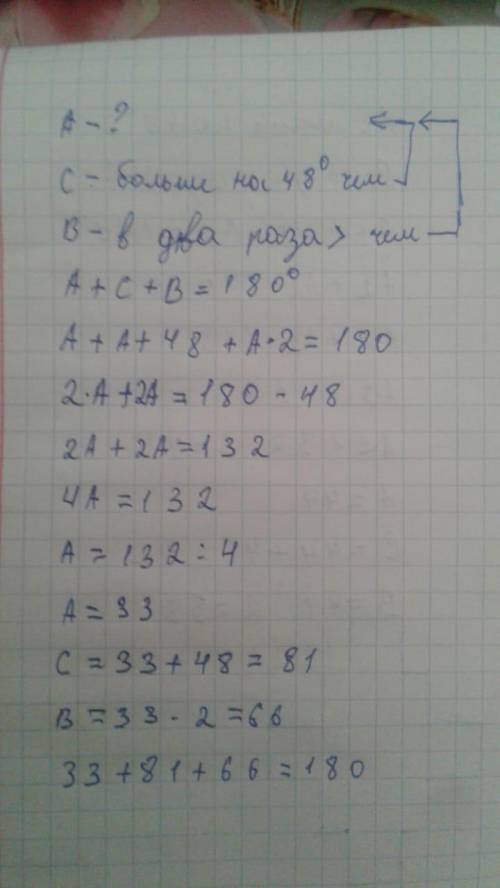 A - ?
C - больше на 48° чем
B - в два раза > чем
A + C + B = 180°
A + A + 48 + A · 2 = 180
2 · A + 2A = 180 - 48
2A + 2A = 132
4A = 132
A = 132 : 4
A = 33
C = 33 + 48 = 81
B = 33 · 2 = 66
33 + 81 + 66 = 180